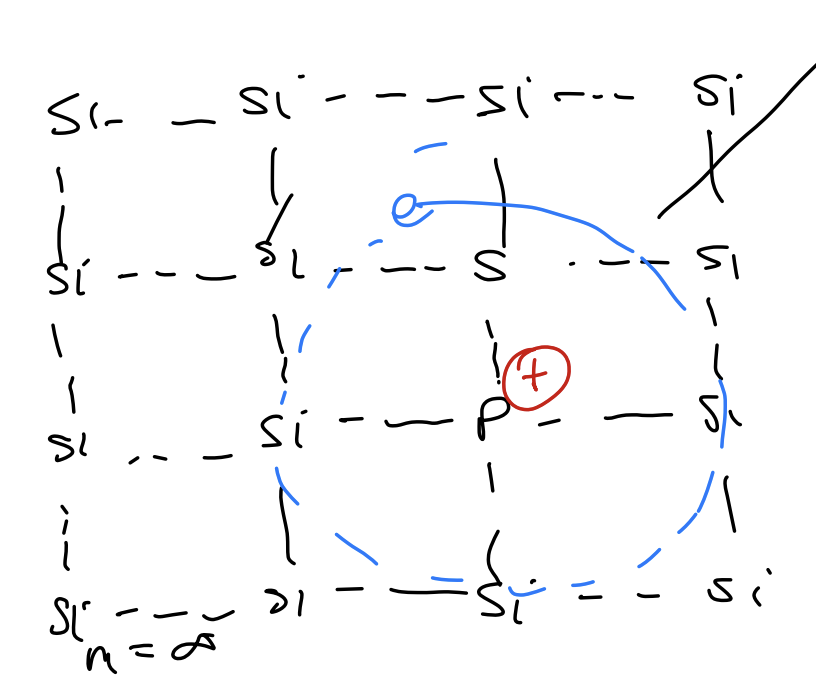 Si Si Si Si
e
Si Si S Si
+
Si P Si
Si
Si Si Si
Si
n = ∞